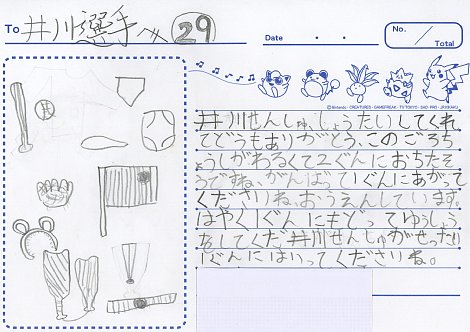 To 井川選手へ 29
Date ・ ・
No. /
Total
©Nintendo・CREATURES・GAMEFREAK・TV TOKYO・SHO-PRO・JR KIKAKU
井川せんしゅ、しょうたいしてくれ
てどうもありがとう、このごろち
ょうしがわるくて2ぐんにおちたそ
うですね、がんばって1ぐんにあがって
くださいね、おうえんしています。
はやく1ぐんにもどってゆうしょう
をしてくだ井川せんしゅがぜったい
1ぐんにはいってくださいね。